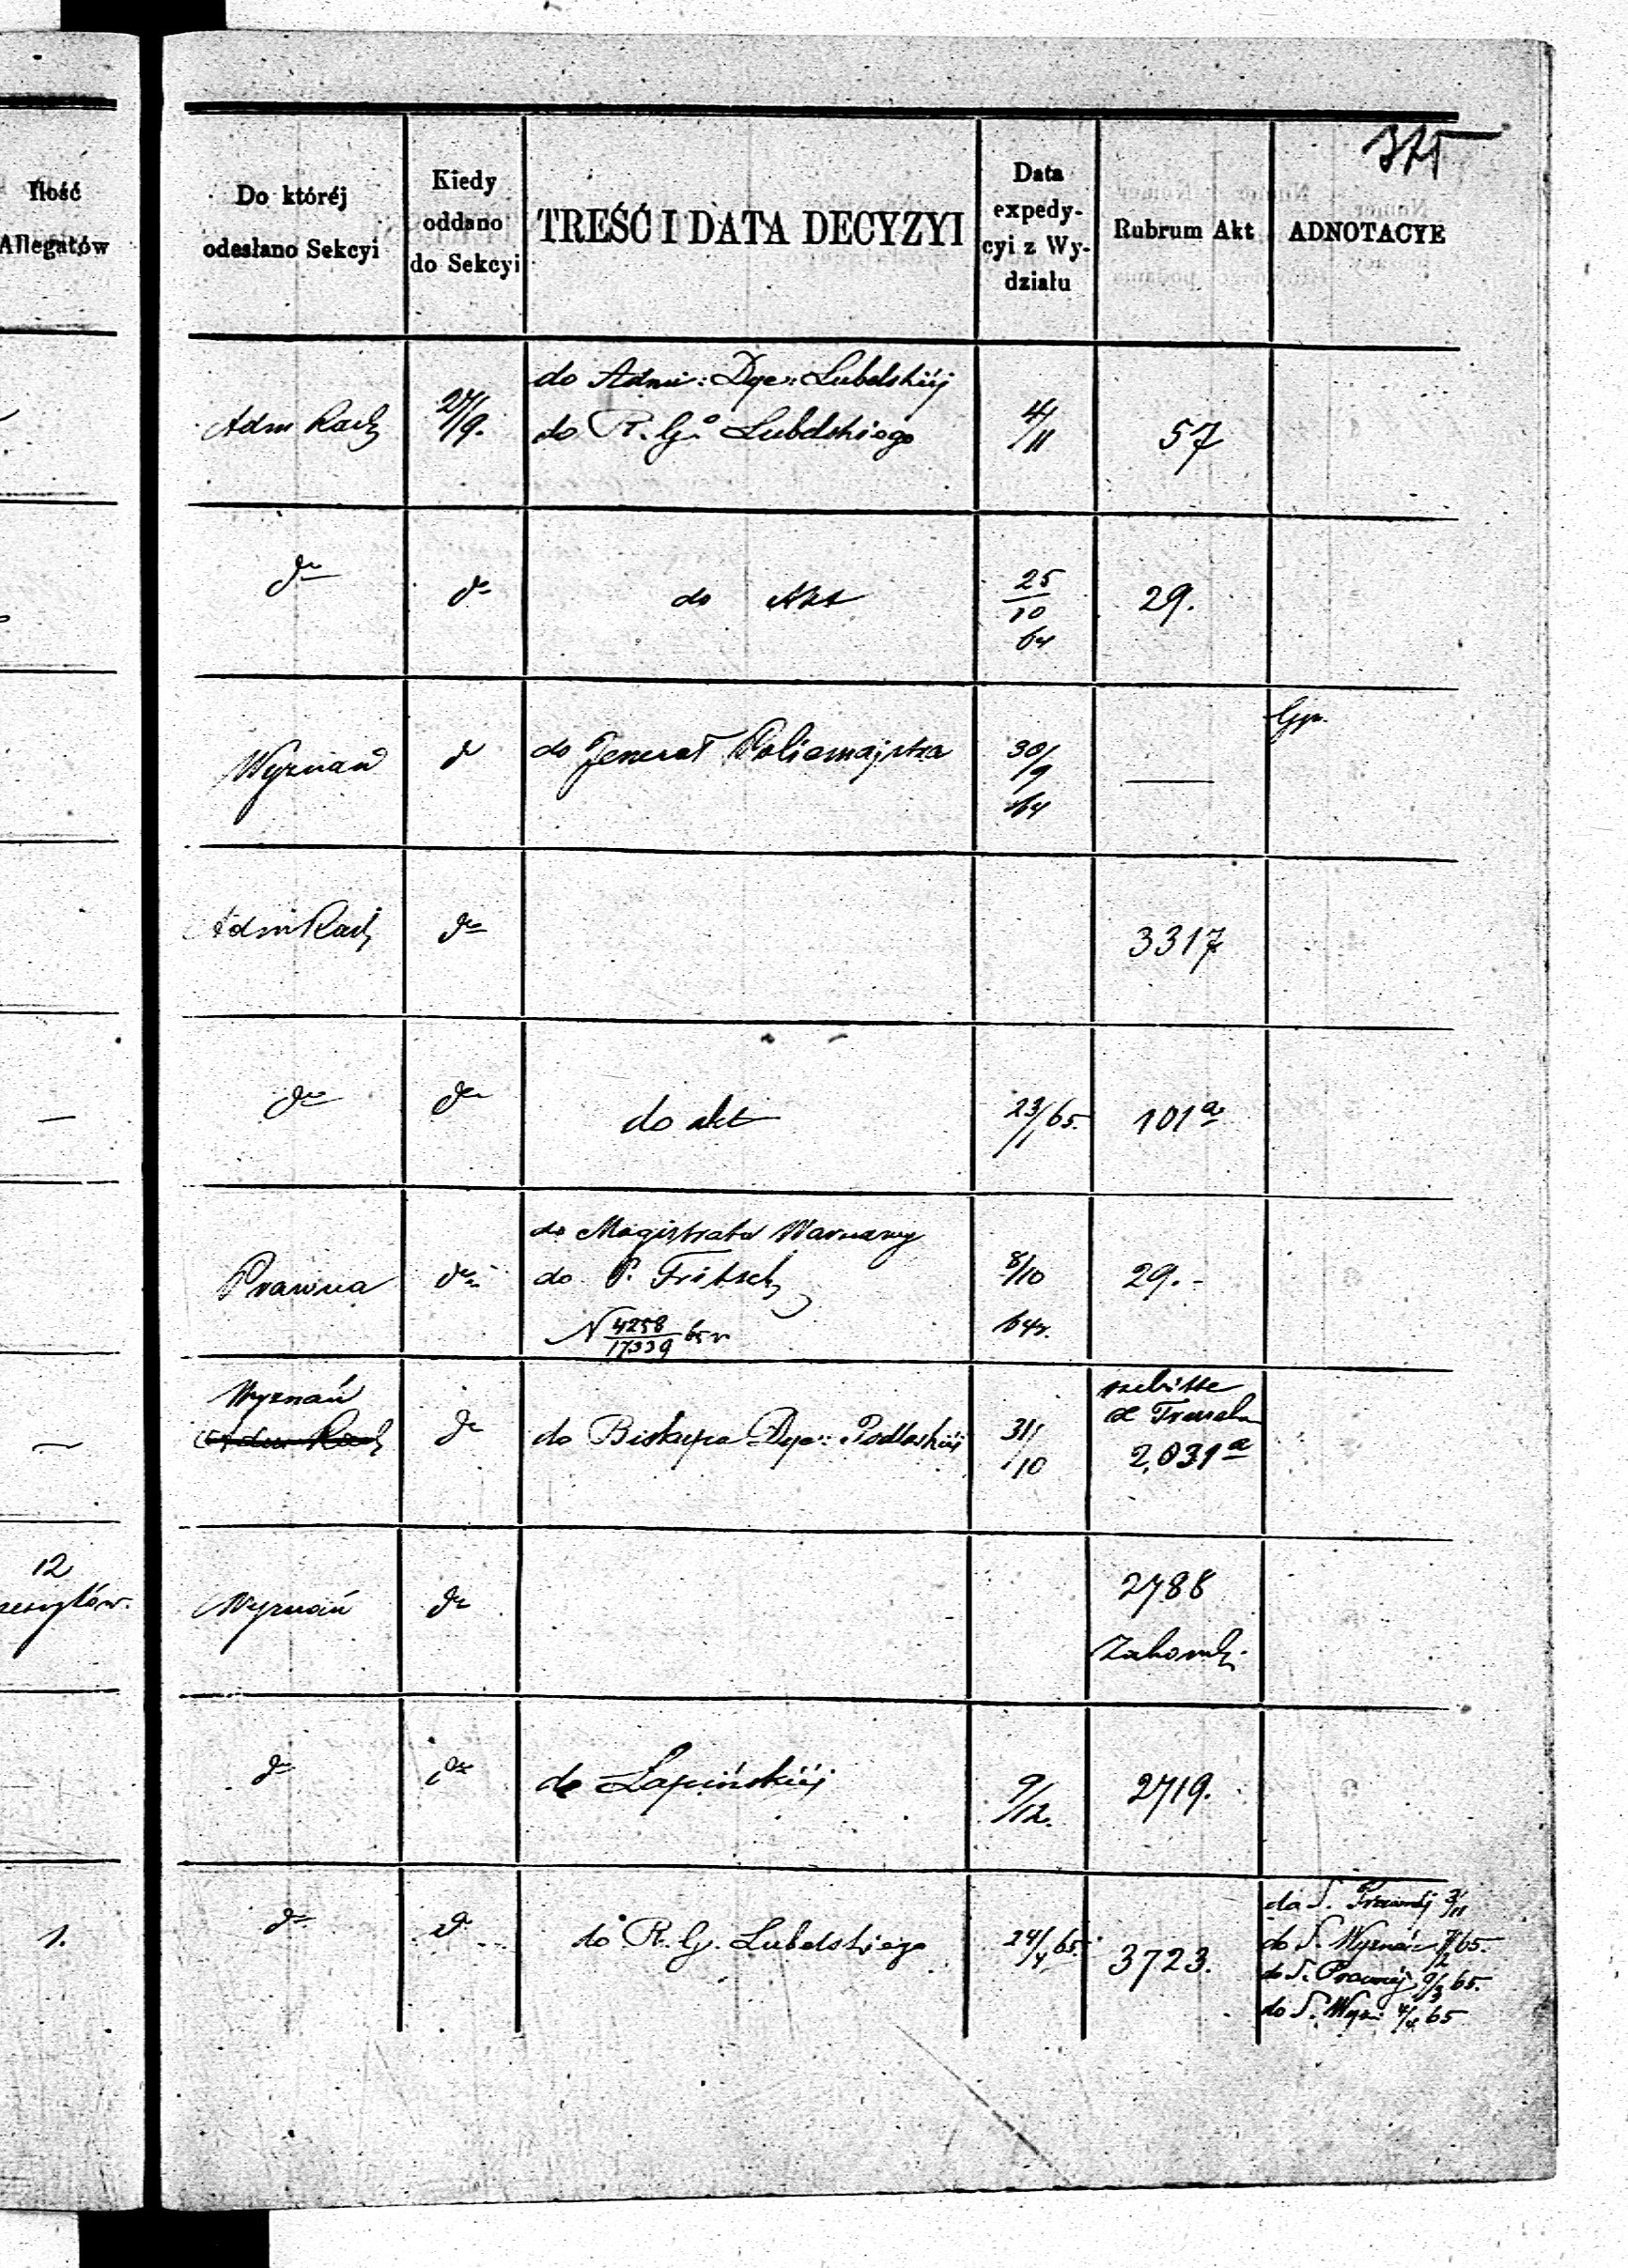 375
Ilość
Allegatów
Do któréj
odesłano Sekcyi
Kiedy
oddano
do Sekcyi
TREŚĆ I DATA DECYZYI
Data
expedy-
cyi z Wy-
działu
Rubrum Akt
ADNOTACYE
Adm Rach
27/9.
do Admi: Dye: Lubelskiéj
do R. Go Lubelskiego
4/11
57
do
do
do Akt
25/10
64
29.
Wyznań
do
do Jenerał Policmajstra
30/9
64
Adm Rach
do
3317
do
do
do akt
23/1 65.
101a
Prawna
do
do Magistratu Warszawy
do P. Fritsch
N 4258/17339 65 r
8/10
64r.
29.-
Wyznań
Adm Rach
do
do Biskupa Dye: Podlaskiéj
31/10
2031a
12
Wyznań
do
2788
do
do
do Łapińskiéj
9/12.
2719.
1.
do
do
do R. G. Lubelskiego
24/4 65.
3723.
do S. Prawnéj 3/11
do S. Wyznań 7/2 65.
do S. Prawnéj 9/3 65.
do S. Wyzn 4/4 65